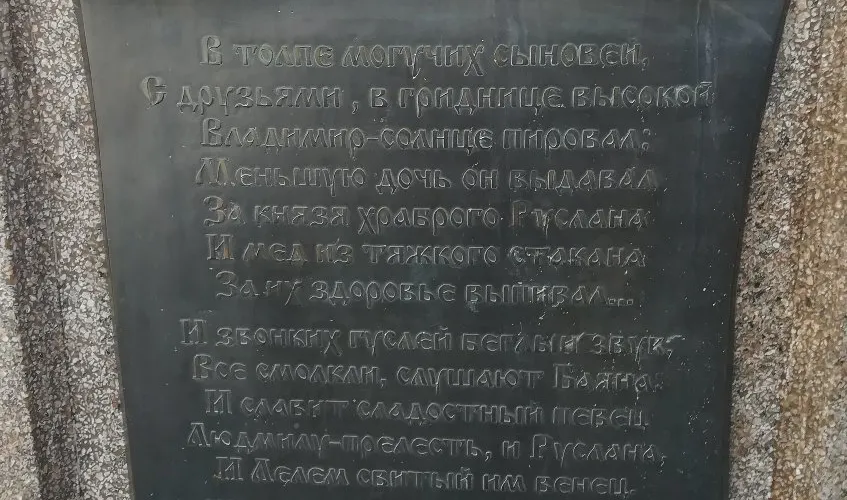 В толпе могучих сыновей,
С друзьями, в гриднице высокой
Владимир-солнце пировал;
Меньшую дочь он выдавал
За князя храброго Руслана
И мед из тяжкого стакана
За их здоровье выпивал...
И звонких гуслей беглый звук;
Все смолкли, слушают Баяна:
И славит сладостный певец
Людмилу-прелесть, и Руслана,
И Лелем свитый им венец.